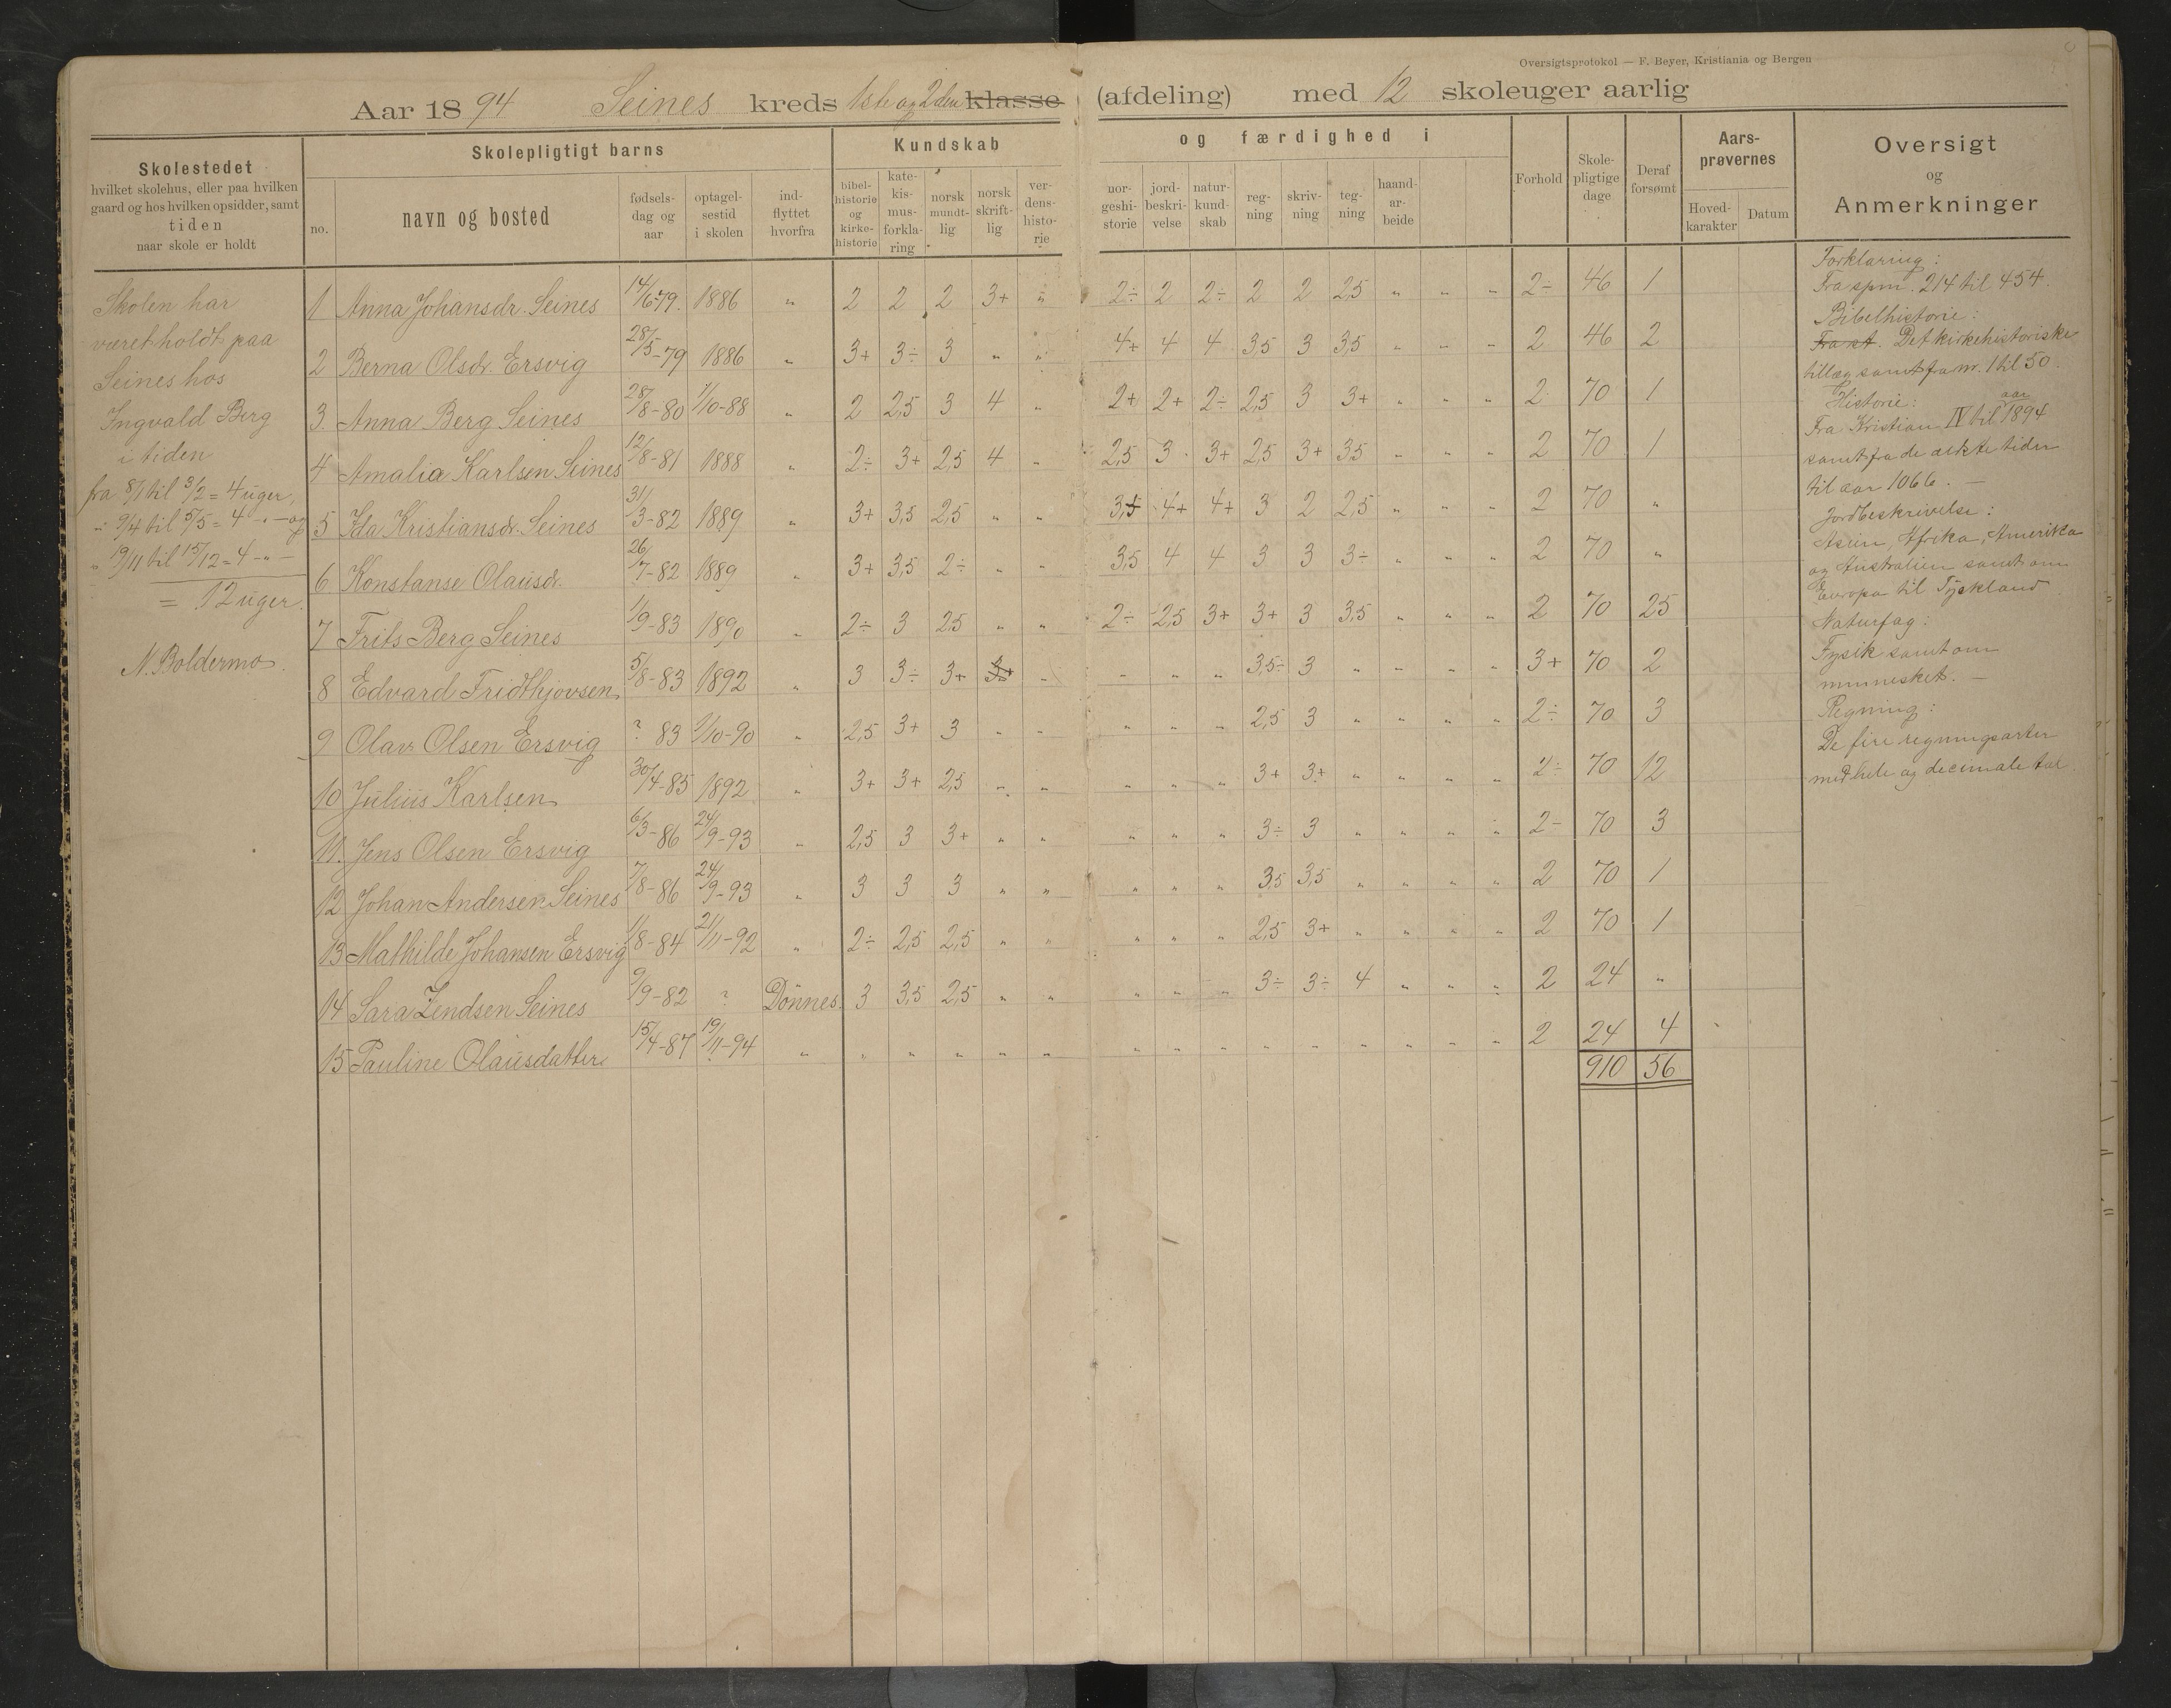 Oversigtsprotokol — F. Beyer, Kristiania og Bergen
Aar 1894 Seines kreds 1ste og 2den klasse (afdeling) med 12 skoleuger aarlig
Skolestedet
hvilket skolehus, eller paa hvilken
gaard og hos hvilken opsidder, samt
tiden
naar skole er holdt
Skolepligtigt barns
no. navn og bosted fødsels-dag og aar optagel-sestid i skolen ind-flyttet hvorfra
Kundskab og færdighed i
bibel-historie og kirke-historie kate-kis-mus-forkla-ring norsk mundt-lig norsk skrift-lig ver-dens-histo-rie nor-geshi-storie jord-beskri-velse natur-kund-skab reg-ning skriv-ning teg-ning haand-ar-beide
Forhold Skole-pligtige dage Deraf forsømt
Aars-prøvernes
Hoved-karakter Datum
Oversigt
og
Anmerkninger
Skolen har
været holdt paa
Seines hos
Ingvald Berg
i tiden
fra 8/1 til 3/2 = 4 uger,
" 9/4 til 5/5 = 4 -"- og
" 19/11 til 15/12 = 4 -"-
= 12 uger.
N. Boldermo.
1 Anna Johansdr. Seines 14/6-79. 1886 " 2 2 2 3+ " 2÷ 2 2÷ 2 2 2,5 " " " 2- 46 1
2 Berna Olsdr. Ersvig 28/5-79 1886 " 3+ 3÷ 3 " " 4+ 4 4 3,5 3 3,5 " " " 2 46 2
3. Anna Berg Seines 28/8-80 1/10-88 " 2 2,5 3 4 " 2+ 2+ 2÷ 2,5 3 3+ " " " 2 70 1
4 Amalia Karlsen Seines 12/8-81 1888 " 2÷ 3+ 2,5 4 " 2,5 3 3+ 2,5 3+ 3,5 " " " 2 70 1
5 Ida Kristiansdr. Seines 31/3-82 1889 " 3+ 3,5 2,5 " " 3,5 4+ 4+ 3 2 2,5 " " " 2 70 "
6. Konstanse Olausdr. 26/7-82 1889 " 3+ 3,5 2÷ " " 3,5 4 4 3 3 3÷ " " " 2 70 "
7 Frits Berg Seines 1/9-83 1890 " 2÷ 3 2,5 " " 2÷ 2,5 3+ 3+ 3 3,5 " " " 2 70 25
8 Edvard Fridthjovsen 5/8-83 1892 " 3 3÷ 3+ 3+ " " " " 3,5÷ 3 " " " " 3+ 70 2
9 Olav Olsen Ersvig ? 83 1/10-90 " 2,5 3+ 3 " " " " " 2,5 3 " " " " 2÷ 70 3
10 Julius Karlsen 30/4-85 1892 " 3+ 3+ 2,5 " " " " " 3+ 3+ " " " " 2÷ 70 12
11. Jens Olsen Ersvig 6/3-86 24/9-93 " 2,5 3 3+ " " " " " 3÷ 3 " " " " 2- 70 3
12 Johan Andersen Seines 7/8-86 24/9-93 " 3 3 3 " " " " " 3,5 3,5 " " " " 2 70 1
13 Mathilde Johansen Ersvig 1/8-84 21/11-92 " 2÷ 2,5 2,5 " " " " " 2,5 3+ " " " " 2 70 1
14 Sara Zendsen Seines 9/9-82 ? Dønnes 3 3,5 2,5 " " " " " 3÷ 3÷ 4 " " " 2 24 "
15 Pauline Olausdatter 15/4-87 19/11-94 " " " " " " " " " " " " " " " 2 24 4
910 56
Forklaring:
Fra spm. 214 til 454.
Bibelhistorie:
Fra st. Det kirkehistoriske
tillæg samt fra nr. 1 til 50.
Historie:
Fra Kristian IV til aar 1894
samt fra de ældste tider
til aar 1066. —
Jordbeskrivelse:
Asien, Afrika, Amerika
og Australien samt om
Europa til Tyskland
Naturfag:
Fysik samt om
mennesket. —
Regning:
De fire regningsarter
med hele og decimale tal